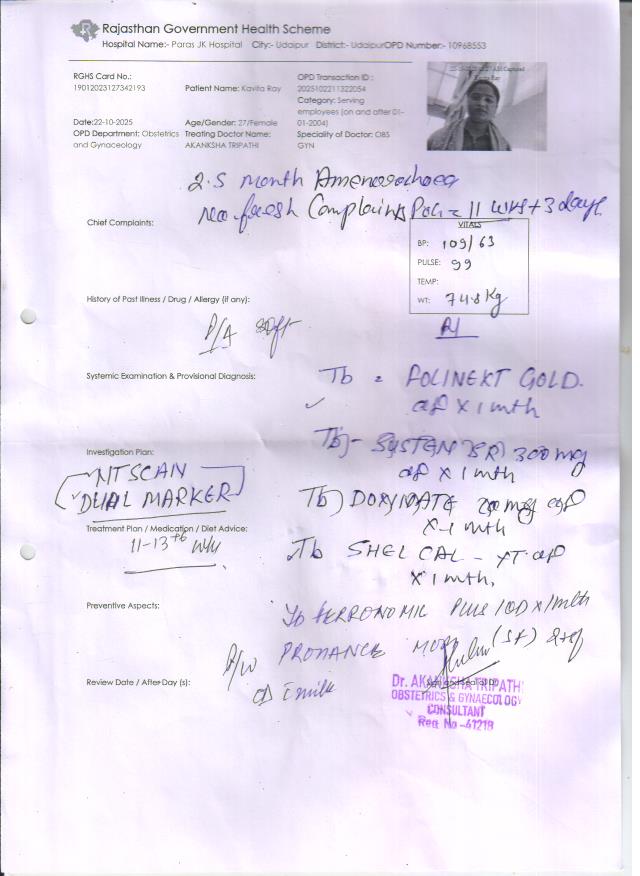 Rajasthan Government Health Scheme
Hospital Name:- Paras JK Hospital City:- Udaipur District:- UdaipurOPD Number:- 10968553
RGHS Card No.:
19012023127342193
Patient Name: Kavita Ray
OPD Transaction ID :
2025102211322054
Category: Serving
employees (on and after 01-
01-2004)
Date:22-10-2025
OPD Department: Obstetrics
and Gynaceology
Age/Gender: 27/Female
Treating Doctor Name:
AKANKSHA TRIPATHI
Speciality of Doctor: OBS
GYN
2.5 month Amenorrhoea
no fresh Complaints POG = 11 wks + 3 days
Chief Complaints:
VITALS
BP: 109/63
PULSE: 99
TEMP:
WT: 74.8 Kg
History of Past Illness / Drug / Allergy (if any):
P/A soft
Systemic Examination & Provisional Diagnosis:
Tb = FOLINEXT GOLD.
X 1 mth
Investigation Plan:
NT SCAN
DUAL MARKER
Tb SYSTEN SR 300 mg
X 1 mth
Tb DOXINATE
X 1 mth
Treatment Plan / Medication / Diet Advice:
11-13+6 wk
Tb SHELCAL - XT
X 1 mth,
Preventive Aspects:
Tb FERRONOMIC PLUS 1OD X 1 mth
P/W PROHANCE MOM (SF)
c milk
Review Date / After Day (s):
Dr. AKANKSHA TRIPATHI
OBSTETRICS & GYNAECOLOGY
CONSULTANT
Reg No -41218